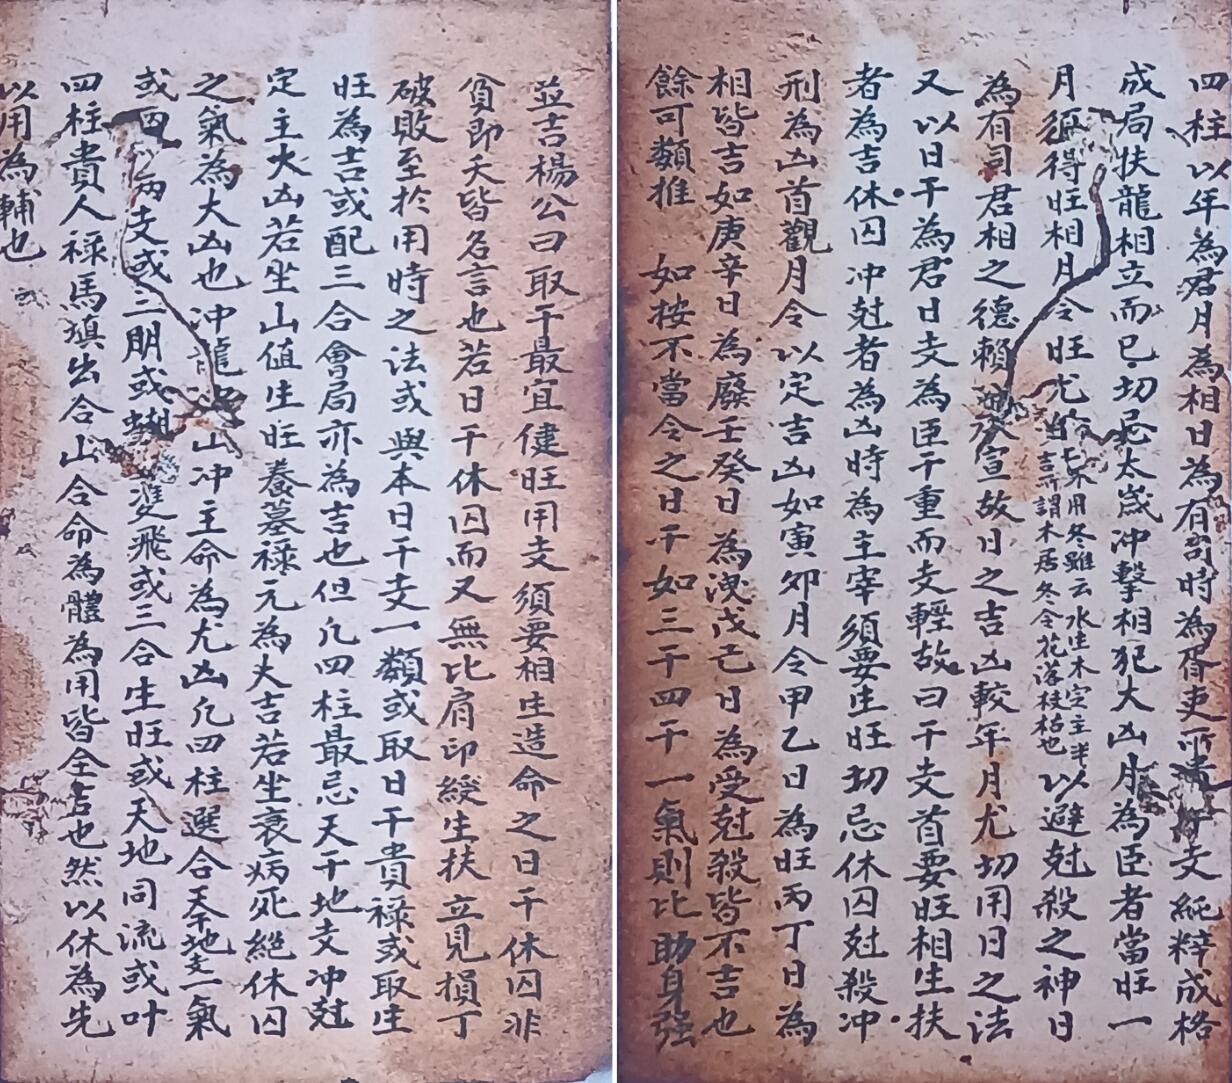 四柱以年為君月為相日為有司時為胥吏所貴干支純粹成格
成局扶龍相立而已切忌太歲沖擊相犯大凶月為臣者當旺一
月須得旺相月令旺尤當
用冬雖云水生木定主半
吉所謂木居冬令花落枝枯也
以避尅殺之神日
為有司君相之德賴宣故日之吉凶較年月尤切用日之法
又以日干為君日支為臣干重而支輕故曰干支首要旺相生扶
者為吉休囚冲尅者為凶時為主宰須要生旺切忌休囚尅殺冲
刑為凶首觀月令以定吉凶如寅夘月令甲乙日為旺丙丁日為
相皆吉如庚辛日為廢壬癸日為洩戊己日為受尅殺皆不吉也
餘可類推 如按不當令之日干如三干四干一氣則比助身強
並吉楊公曰取干最宜健旺用支須要相生造命之日干休囚非
貧即夭皆名言也若日干休囚而又無比肩印綬生扶立見損丁
破敗至於用時之法或與本日干支一類或取日干貴祿或取生
旺為吉或配三合會局亦為吉也但凢四柱最忌天干地支冲尅
定主大凶若坐山值生旺養墓祿元為大吉若坐衰病死絕休囚
之氣為大凶也冲龍山冲主命為尤凶凢四柱選合奉地支一氣
或兩支或三朋或蝴雙飛或三合生旺或天地同流或叶
四柱貴人祿馬填出合山合命為體為用皆全吉也然以休為先
以用為輔也